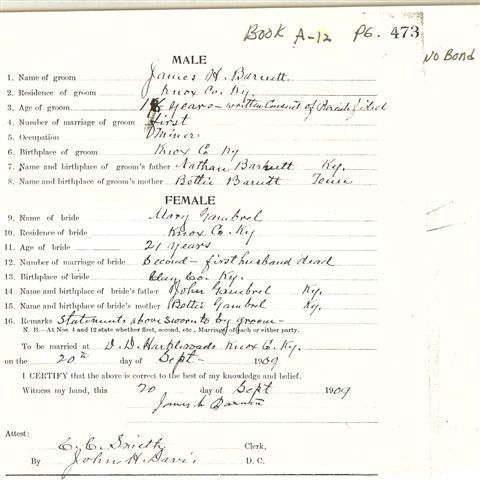 BOOK A-12 PG. 473
No Bond
MALE
1. Name of groom James H. Barnett
2. Residence of groom Knox Co. Ky.
3. Age of groom 18 years – written Consent of Parents filed
4. Number of marriage of groom first
5. Occupation Miner
6. Birthplace of groom Knox Co Ky
7. Name and birthplace of groom's father Nathan Barnett Ky.
8. Name and birthplace of groom's mother Bettie Barnett Tenn
FEMALE
9. Name of bride Mary Gambrel
10. Residence of bride Knox Co. Ky
11. Age of bride 21 years
12. Number of marriage of bride Second – first husband dead
13. Birthplace of bride Clay Co. Ky.
14. Name and birthplace of bride's father John Gambrel Ky.
15. Name and birthplace of bride's mother Bettie Gambrel Ky.
16. Remarks Statements above sworn to by groom –
N. B.—At Nos. 4 and 12 state whether first, second, etc., Marriage of each or either party.
To be married at D. D. Knox C. Ky.
on the 20th day of Sept – 1909
I CERTIFY that the above is correct to the best of my knowledge and belief.
Witness my hand, this 20 day of Sept 1909
James Barnett
Attest:
C. C. Smith Clerk,
By John H. Davis D. C.